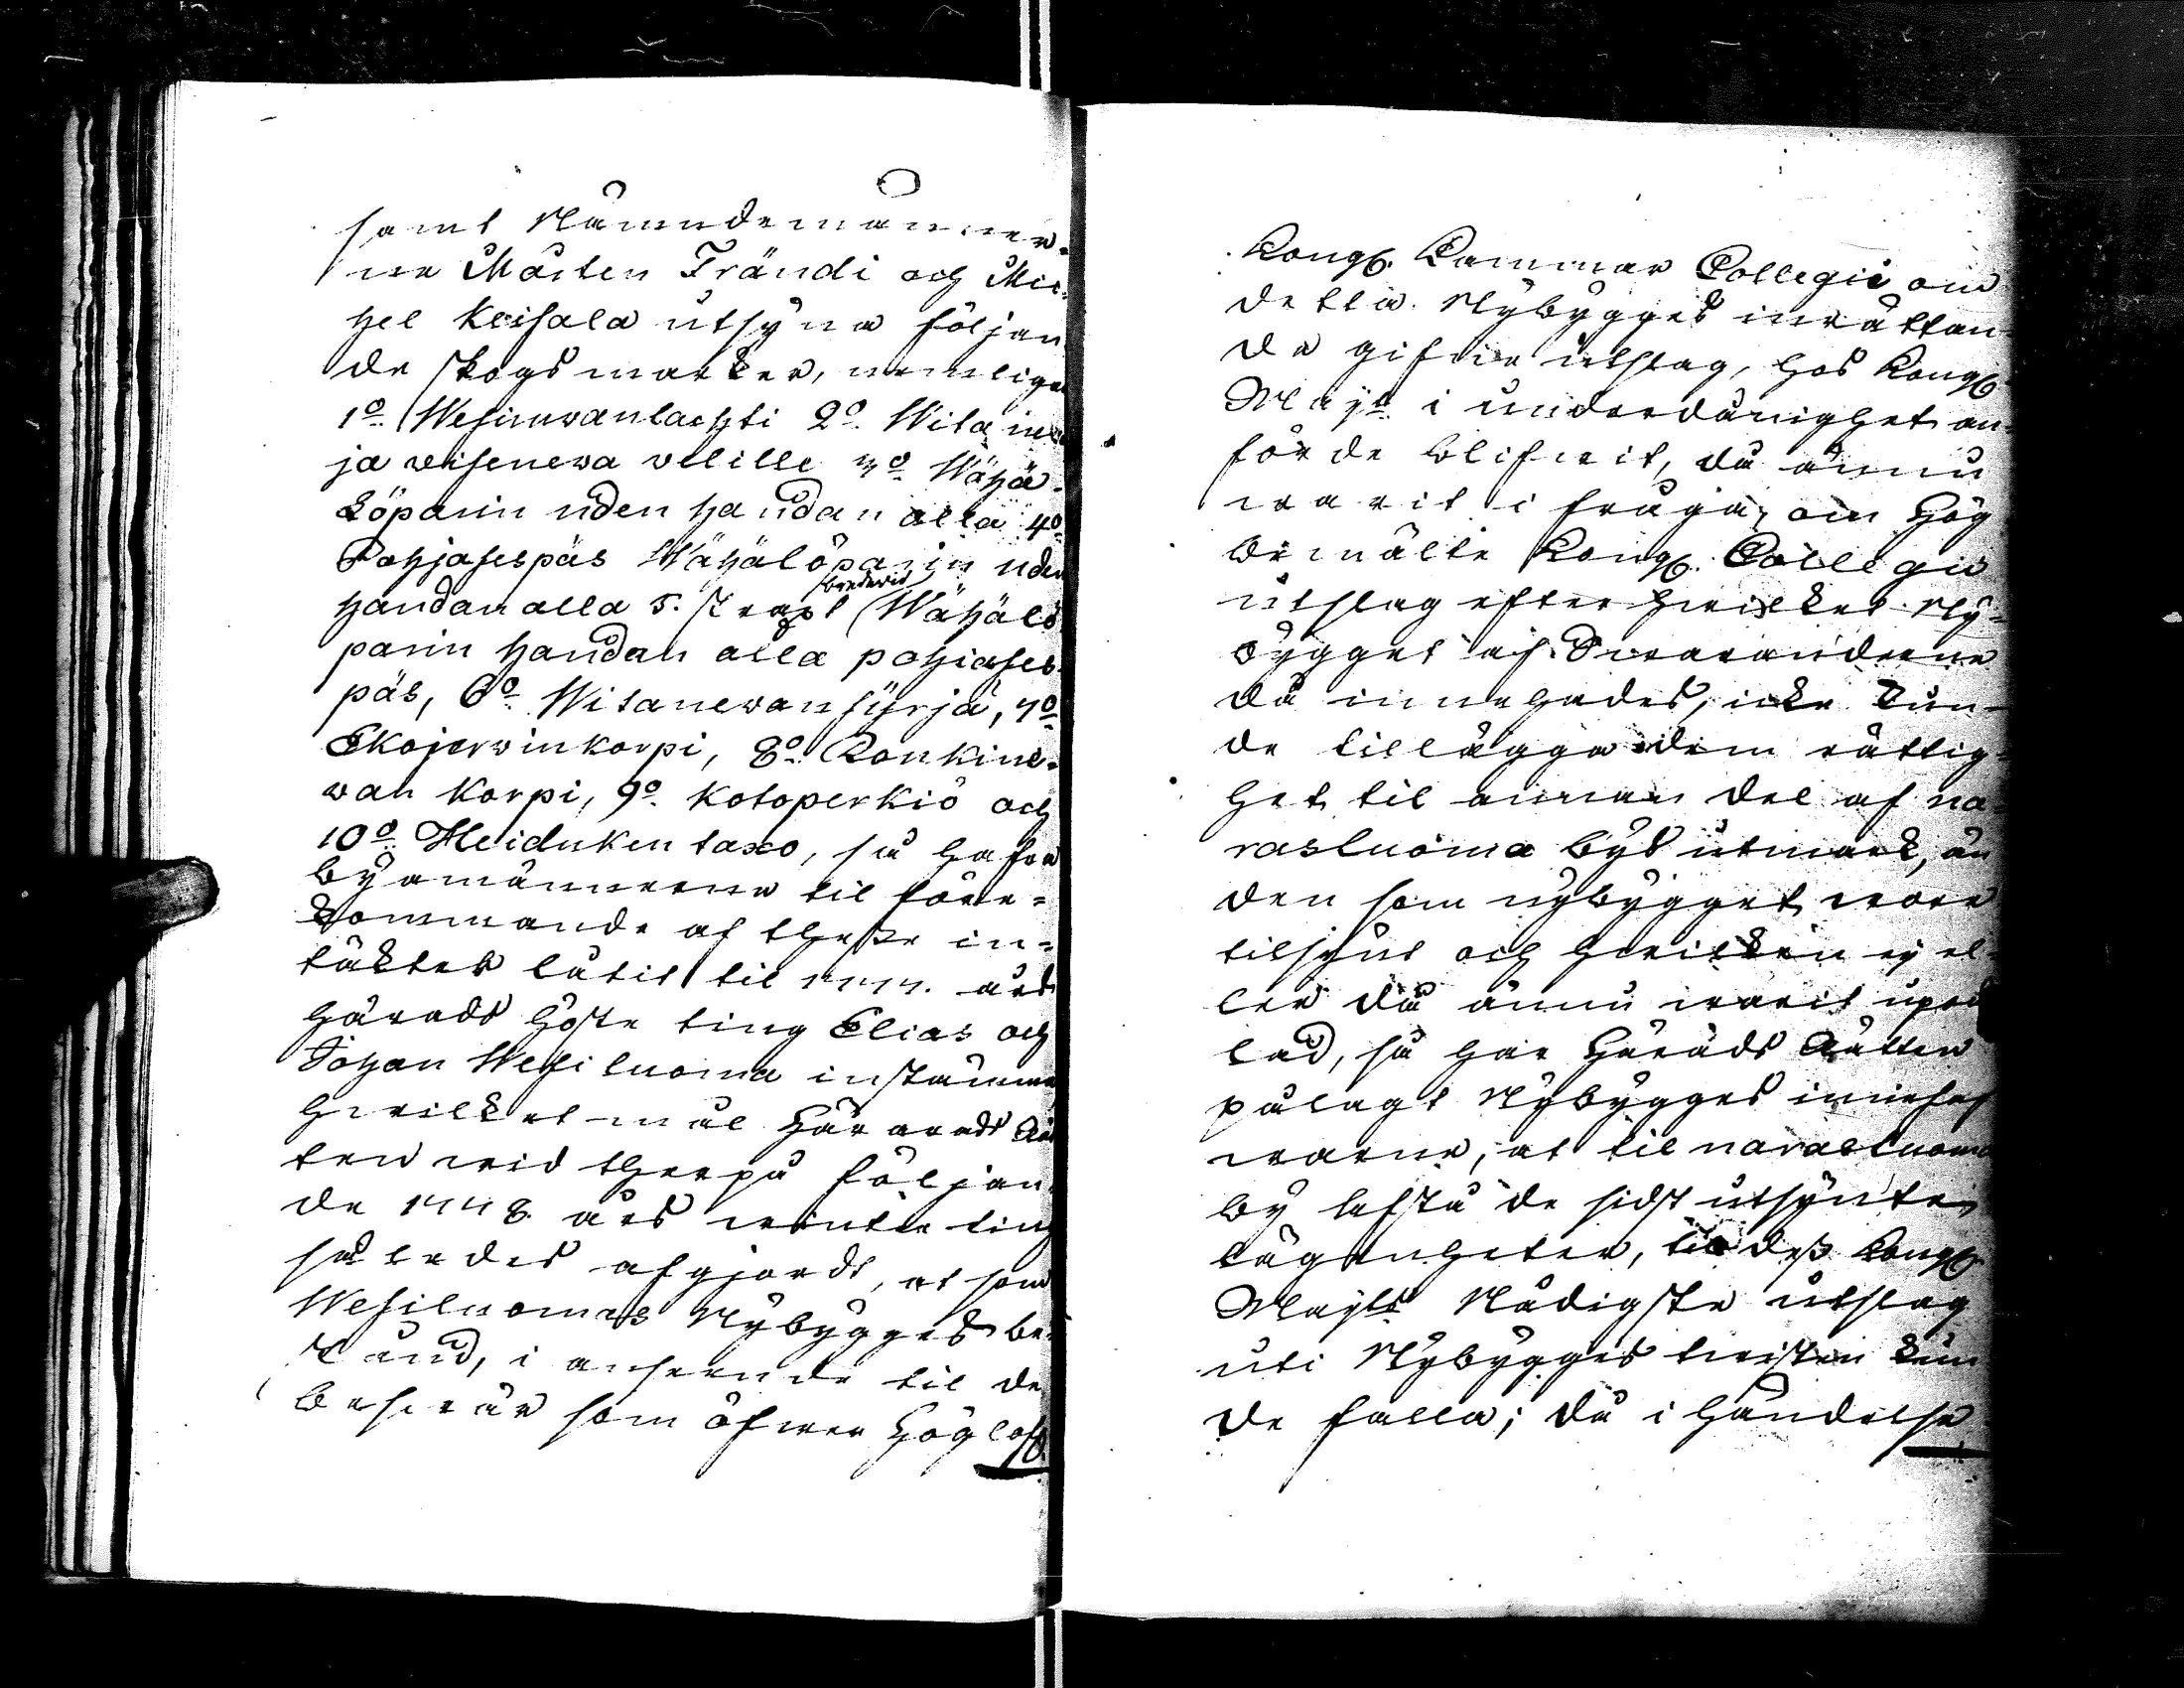 samt Nämndemänner-
ne Mårten Frändi och Mic-
hel Keisala utsyna följan
de skogsmarker, nemligen
1o Wesiuwanlachti 2o Wita
ja weisenewa welille 3o Wähä
löparin uden haudan alla 4o
Pohjasespäs Wähälöparin uden
haudan alla 5. strax bredewid Wähälö
parin haudan alla pohiases
päs, 6o Witanewan syrjä, 7o
Ekojerwinkorpi, 8o Ronkine-
wan Korpi, 9o Kotoperkiö och
10o Heiduken taxo, så hafwa
byamännerne til före-
kommande af thesse in-
täckter låtit til 1777. års
Härads Höste ting Elias och
Johan Wesiluoma instämma
hwilket mål Härads Rät
ten wid therpå följan
de 1778. års winter ting
således afgjordt, at som
Wesiluomas Nybygges be-
stånd, i anseende til de
beswär som öfwer Höglofl.
Kongl. Kammar Collegii om
detta Nybygges inrättan-
de gifne utslag, hos Kongl.
Majt. i underdånighet an-
förde blifwit, då ännu
warit i fråga, om Hög
bemälte Kongl. Collegii
utslag efter hwilket Ny-
bygget af Swaranderne
då innehades, icke kun-
de tillägga dem rättig-
het til annan del af na-
rasluoma bys utmark, än
den som nybygget wore
tilsynt och hwilken ej el-
ler då ännu warit upod
lad, så har Härads Rätten
pålagt Nybygges innehaf
warne, at til narasluoma
by lefta de sidst utsynte
lägenheter, til dess Kongl.
Majts Nådigste utslag
uti Nybygges twisten kun
de falla; då i händelse